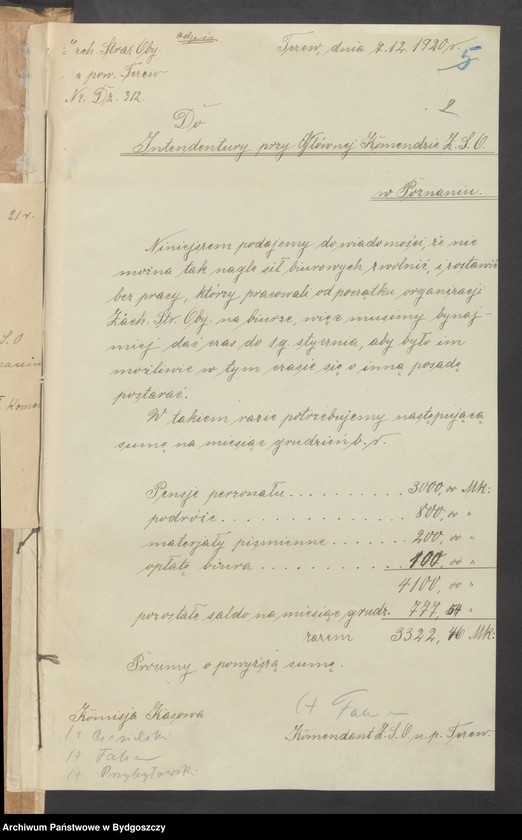 odpis
Zach. Straż Oby.
z pow. Tczew
Nr. Dz. 312.
Tczew, dnia 7.12.1920 r.
5
Do
Intendentury przy Głównej Komendzie Z.S.O.
w Poznaniu.
Niniejszem podajemy do wiadomości, że nie
można tak nagle sił biurowych zwolnić, i zostawić
bez pracy, którzy pracowali od początku organizacji
Zach. Str. Oby. na biurze, więc musimy bynaj-
mniej dać czas do 1g. stycznia, aby było im
możliwie w tym czasie się o inną posadę
postarać.
W takiem razie potrzebujemy następującą
sumę na miesiąc grudzień b. r.
Pensje perzonału . . . . . . . . . . 3000, oo Mk:
podróże . . . . . . . . . . . . . . . 800, oo "
materjały piśmienne . . . . . . . 200, oo "
opłatę biura . . . . . . . . . . . . 100, oo "
4100, oo "
pozostałe saldo na miesiąc grudz. 777, 54 "
razem 3322, 46 Mk:
Prosimy o powyższą sumę.
Komisja Kasowa
/+ Ciesielski
/+ Faba
/+ Przybyłowski
(+ Faba
Komendant Z.S.O. n. p. Tczew.
21 r.
S. O
Komen
Archiwum Państwowe w Bydgoszczy